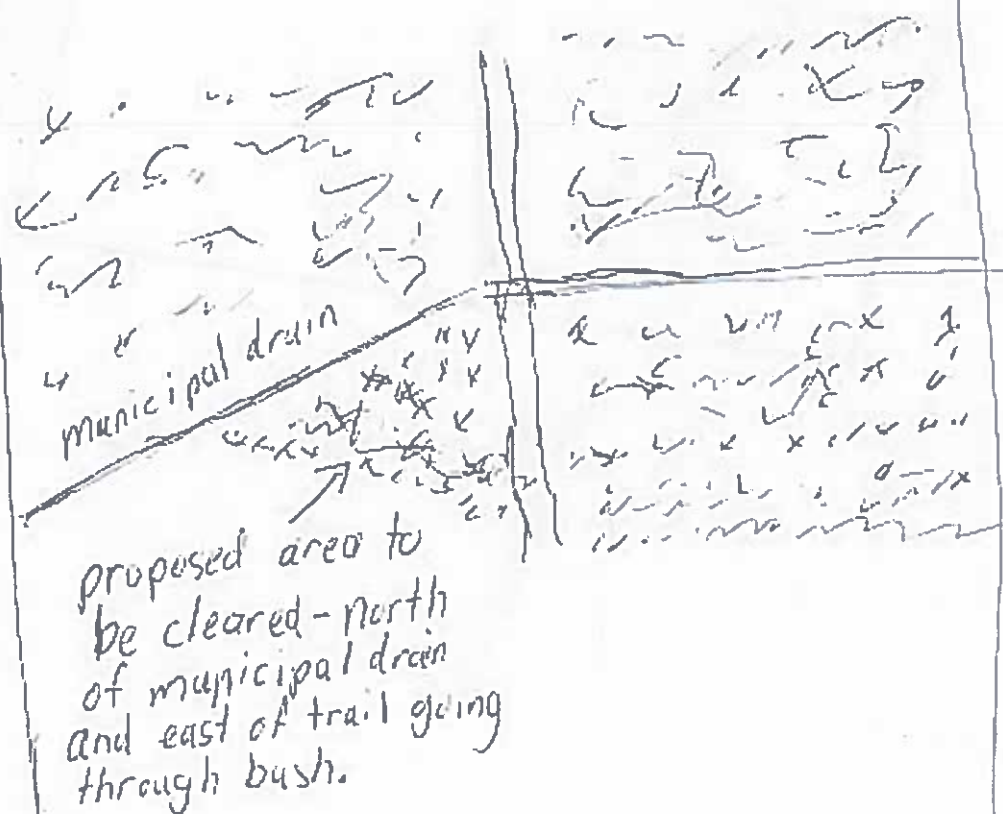 municipal drain
proposed area to
be cleared - north
of municipal drain
and east of trail going
through bush.